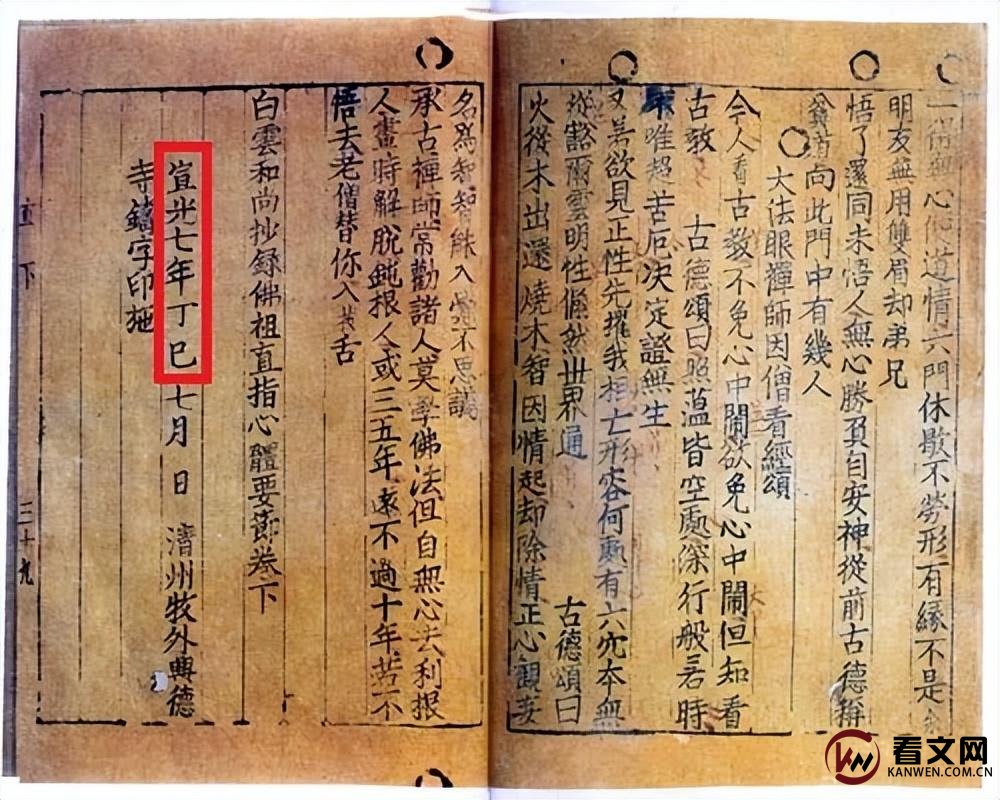 一無心便道情六門休歇不勞形有緣不是
朋友無用雙眉却弟兄
悟了還同未悟人無心勝負自安神從前古德稱
貧道向此門中有幾人
大法眼禪師因僧看經頌
今人看古敎不免心中鬧欲免心中鬧但知看
古敎 古德頌曰照蘊皆空處深行般若時
唯超苦厄決定證無生
又若欲見正性先摧我相亡形容何處有六穴本無
從豁爾雲明性翛然世界通 古德頌曰
火從木出還燒木智因情起却除情正心觀妄
名爲智智能入覺不思議
承古禪師常勸諸人莫學佛法但自無心去利根
人畫時解脫鈍根人或三五年遠不過十年若不
悟去老僧替你入拔舌
白雲和尚抄錄佛祖直指心體要節卷下
宣光七年丁巳七月 日 淸州牧外興德
寺鑄字印施
直下 三十九
看文网
KANWEN.COM.CN